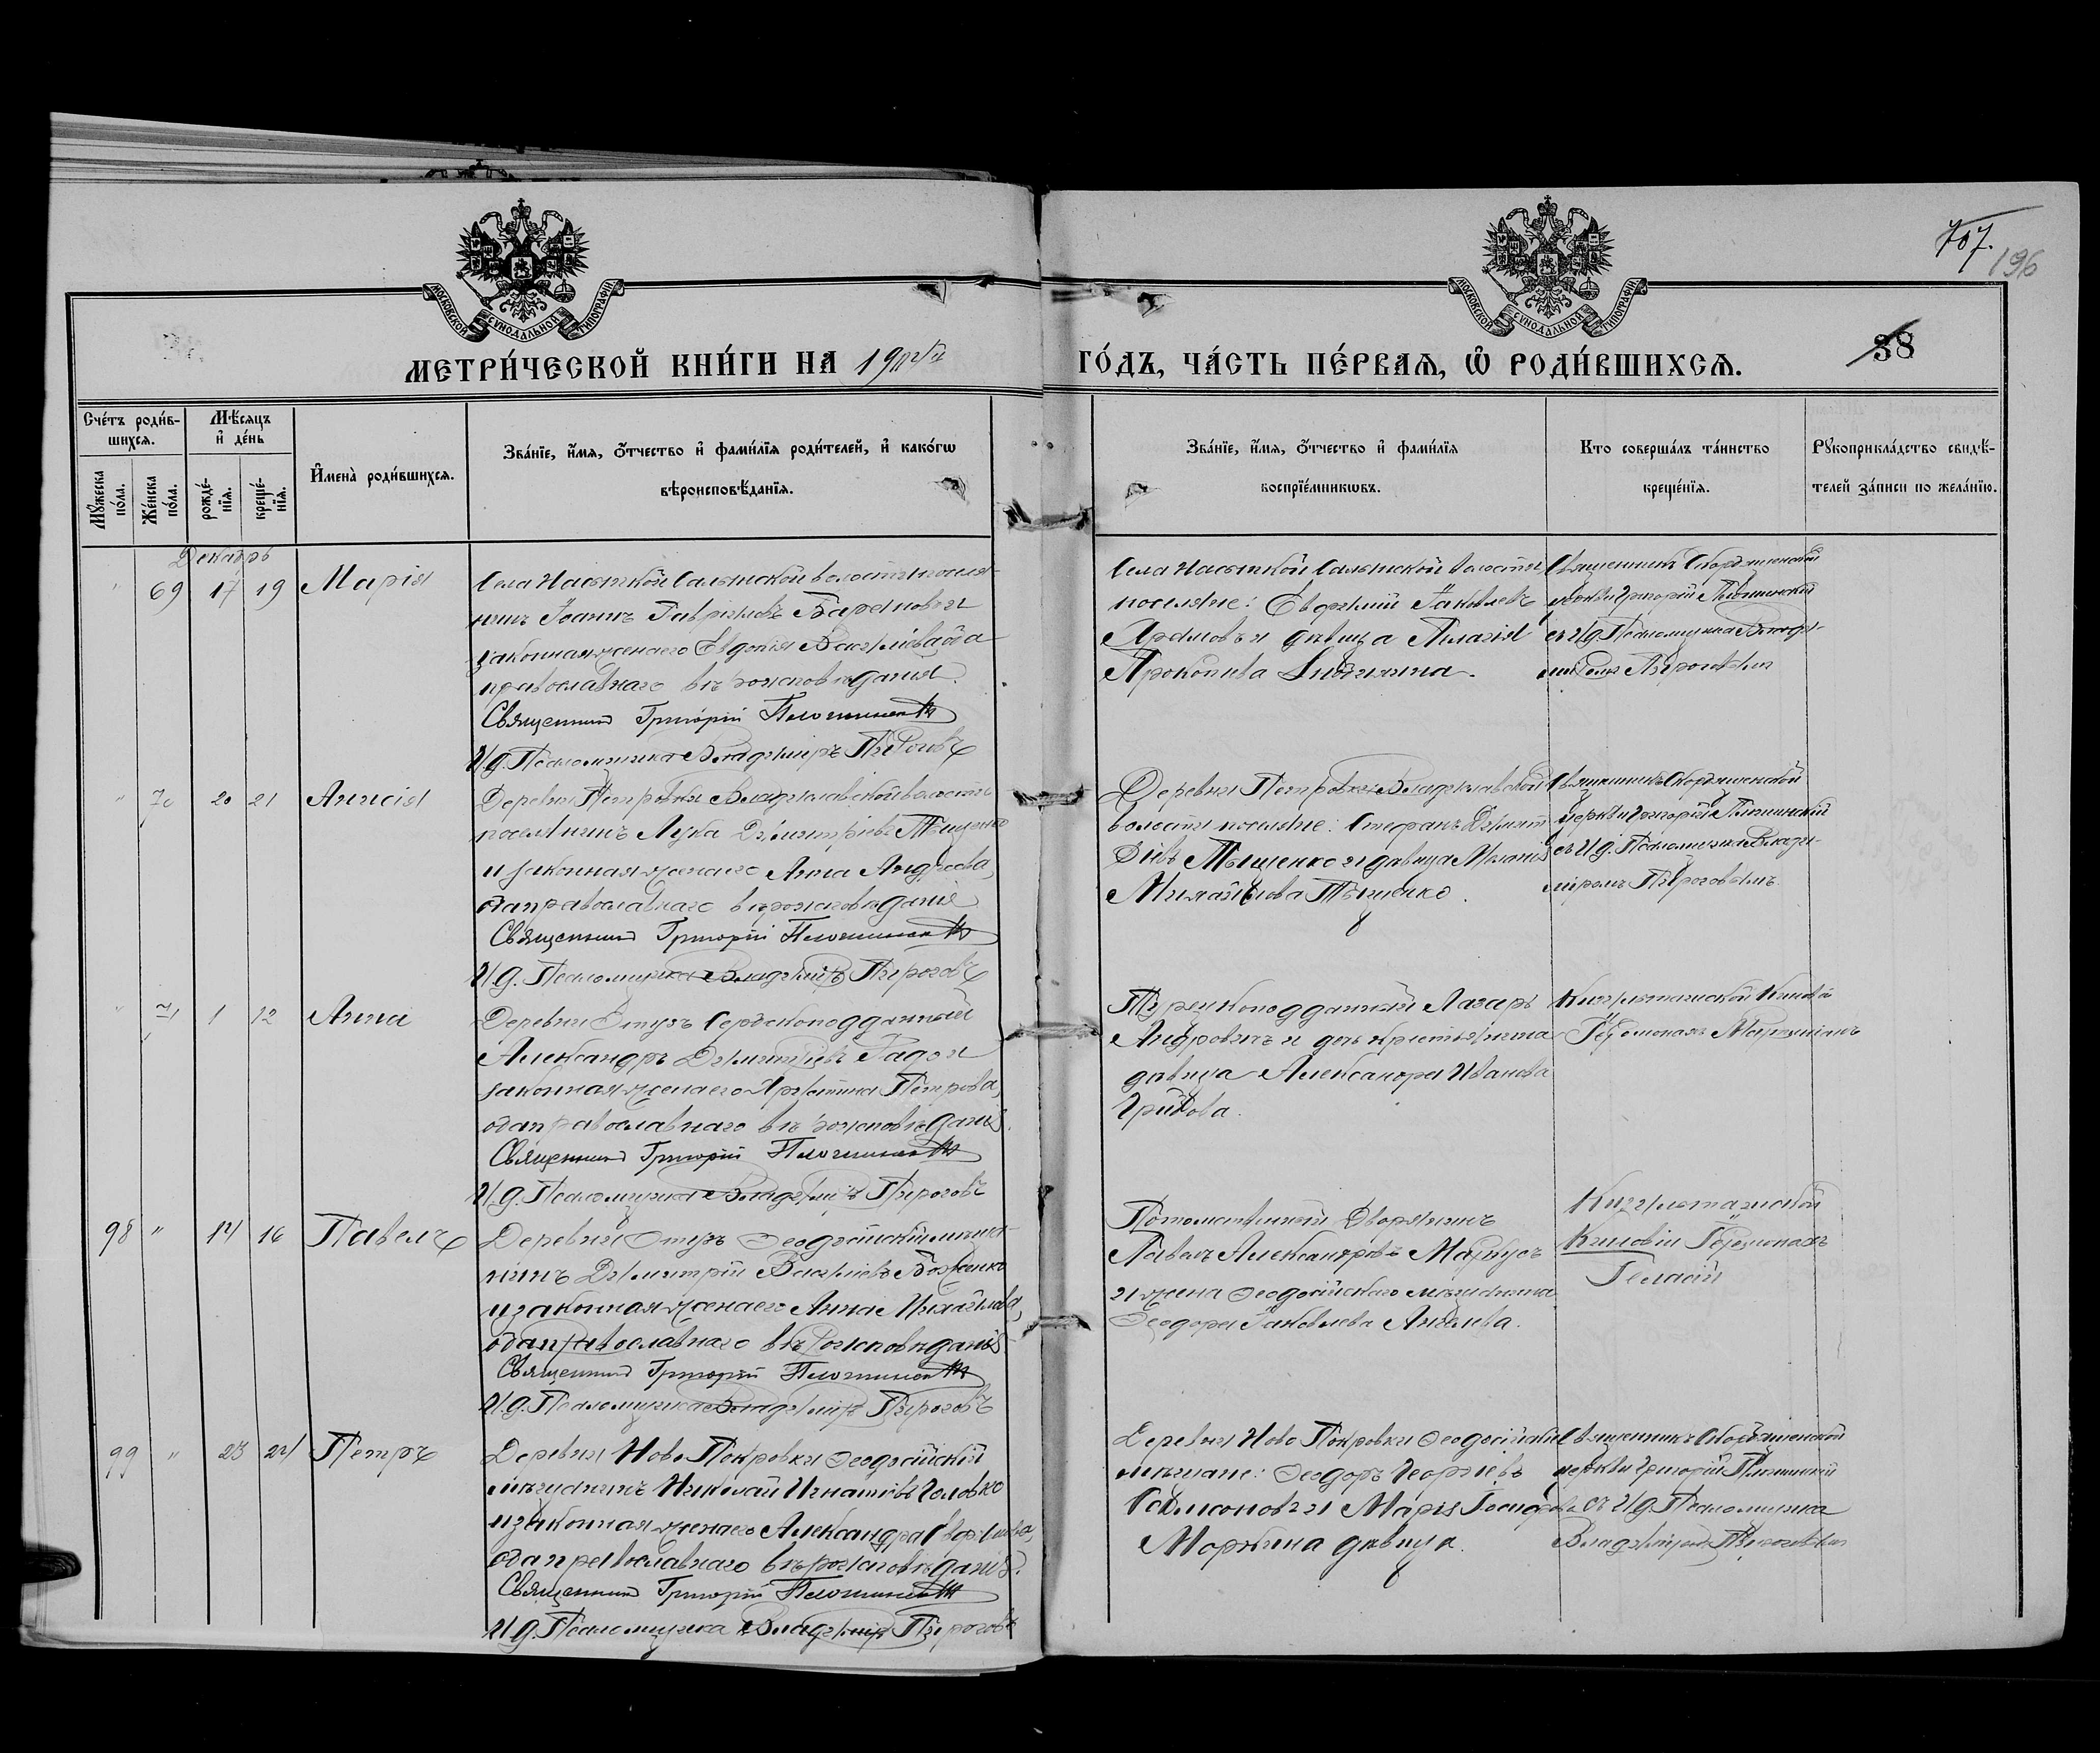 МОСКОВСКОЙ СУНОДАЛЬНОЙ ТИПОГРАФІИ
МОСКОВСКОЙ СУНОДАЛЬНОЙ ТИПОГРАФІИ
707.
196
МЕТРИ́ЧЕСКОЙ КНИ́ГИ НА 19
ГО́ДЪ, ЧА́СТЬ ПЕ́РВАѦ, Ѽ РОДИ́ВШИХСѦ.
38
Сче́тъ роди́в-
шихсѧ.
Мѣ́сѧцъ
и҆ де́нь
Мꙋ́жеска по́ла.
Же́нска по́ла.
рожде́-
нїѧ.
креще́-
нїѧ.
И҆мена̀ роди́вшихсѧ.
Зва́нїе, и҆́мѧ, ѻ҆́тчество и҆ фами́лїѧ роди́телей, и҆ како́гѡ
вѣроисповѣ́данїѧ.
Зва́нїе, и҆́мѧ, ѻ҆́тчество и҆ фами́лїѧ
воспрїе́мникѡвъ.
Кто соверша́лъ та́инство
креще́нїѧ.
Рꙋкоприкла́дство свидѣ́-
телей за́писи по жела́нїю.
Декабрь
" 69 17 19 Марія
Села Насыпкой Салынской волости поселя-
нинъ Іоаннъ Гавріиловъ и
законная жена его Евдокія оба
православнаго вѣроисповѣданія.
Священникъ Григорій
И. д. Псаломщика Владиміръ Пироговъ
Села Насыпкой Салынской волости
поселяне: Евфимій Іаковлевъ
и дѣвица Пелагія
Прокопіева
Священникъ
церкви Григорій
съ И. д. Псаломщика Влади-
міромъ Пироговымъ
" 70 20 21 Анисія
Деревни Петровки Владиславской волости
поселянинъ Лука Димитріевъ Тыщенко
и законная жена его Анна Андреева,
оба православнаго вѣроисповѣданія
Священникъ Григорій
И. д. Псаломщика Владиміръ Пироговъ
Деревни Петровки Владиславской
волости поселяне: Стефанъ Димит-
ріевъ Тыщенко и дѣвица
Михайлова Тыщенко.
Священникъ
церкви Григорій
съ И. д. Псаломщика Влади-
міромъ Пироговымъ.
" 71 1 12 Анна
Деревни Отузъ Сербскоподданный
Александръ Димитріевъ Радо и
законная жена его Христина Петрова,
оба православнаго вѣроисповѣданія.
Священникъ Григорій
И. д. Псаломщика Владиміръ Пироговъ
Турецкоподданный Лазарь
Андровичъ и дочь крестьянина
дѣвица Александра Иванова
Грибова.
Кизилташской Киновіи
Іеромонахъ
98 " 14 16 Павелъ
Деревни Отузъ Ѳеодосійскій мѣща-
нинъ Димитрій Василіевъ Боженко
и законная жена его Анна Михайлова,
оба православнаго вѣроисповѣданія
Священникъ Григорій
И. д. Псаломщика Владиміръ Пироговъ
Потомственный Дворянинъ
Павелъ Александровъ Маркусъ
и жена Ѳеодосійскаго мѣщанина
Ѳеодора Іаковлева
Кизилташской
Киновіи Іеромонахъ
Геласій
99 " 23 24 Петръ
Деревни Ново Покровки Ѳеодосійскій
мѣщанинъ Николай Игнатіевъ Головко
и законная жена его Александра
оба православнаго вѣроисповѣданія.
Священникъ Григорій
И. д. Псаломщика Владиміръ Пироговъ
Деревни Ново Покровки Ѳеодосійскіе
мѣщане: Ѳеодоръ Георгіевъ
и Марія
Моркина дѣвица.
Священникъ
церкви Григорій
съ И. д. Псаломщика
Владиміромъ Пироговымъ